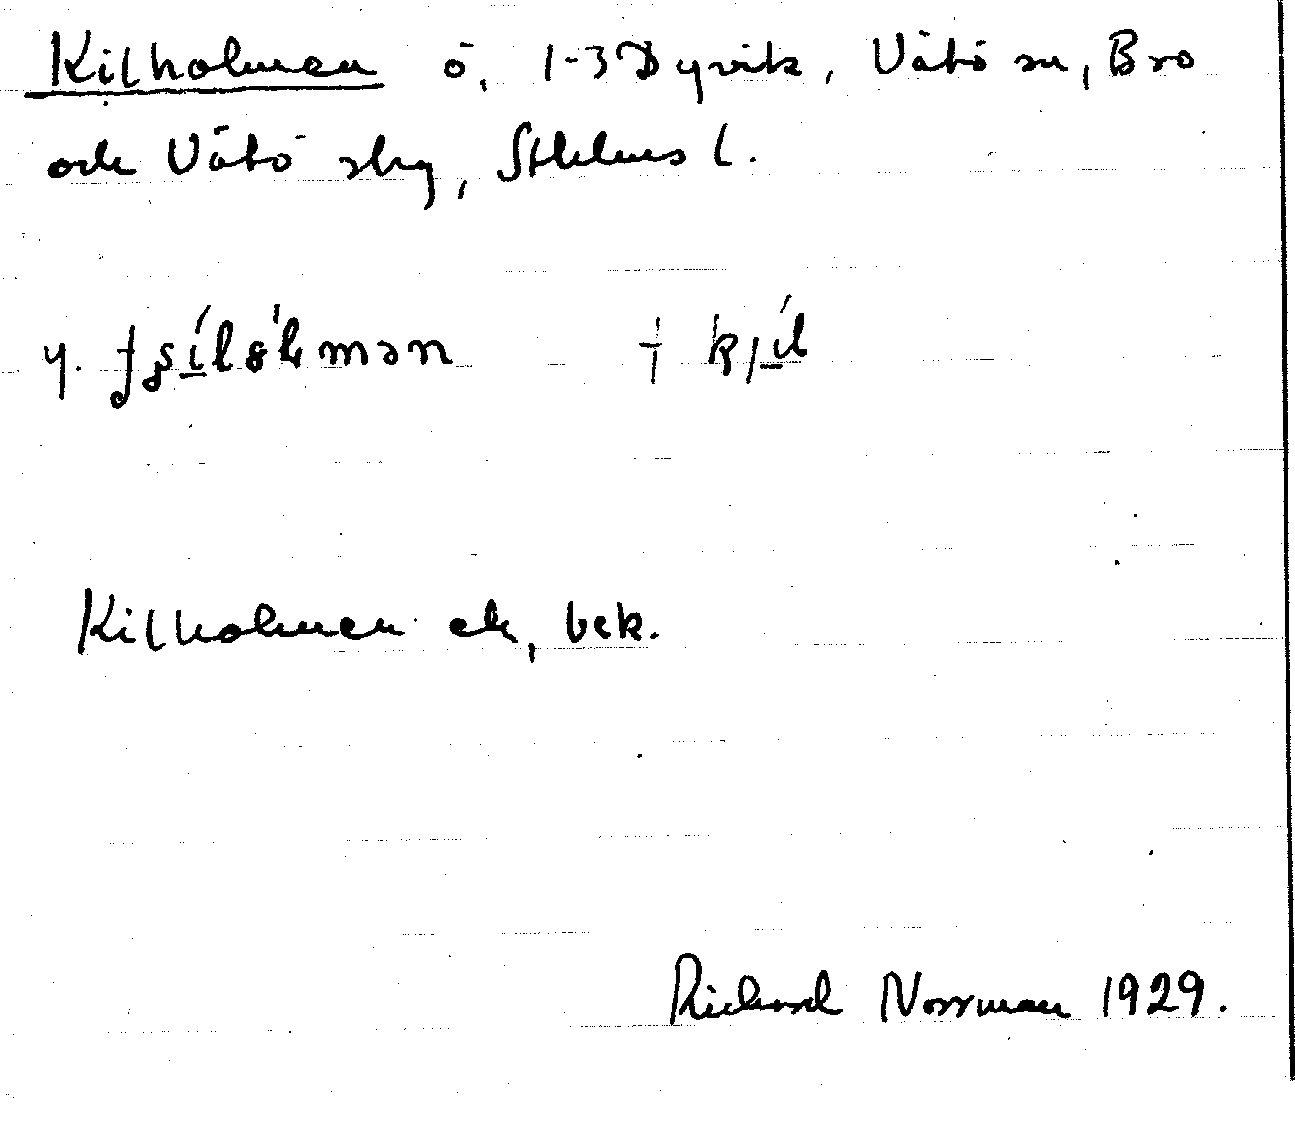 Kilholmen ö, 1-3 Dyvik, Vätö sn, Bro
och Vätö skg, Sthlms l.
y.
†
Kilholmen ek, bek.
Richard Norrman 1929.